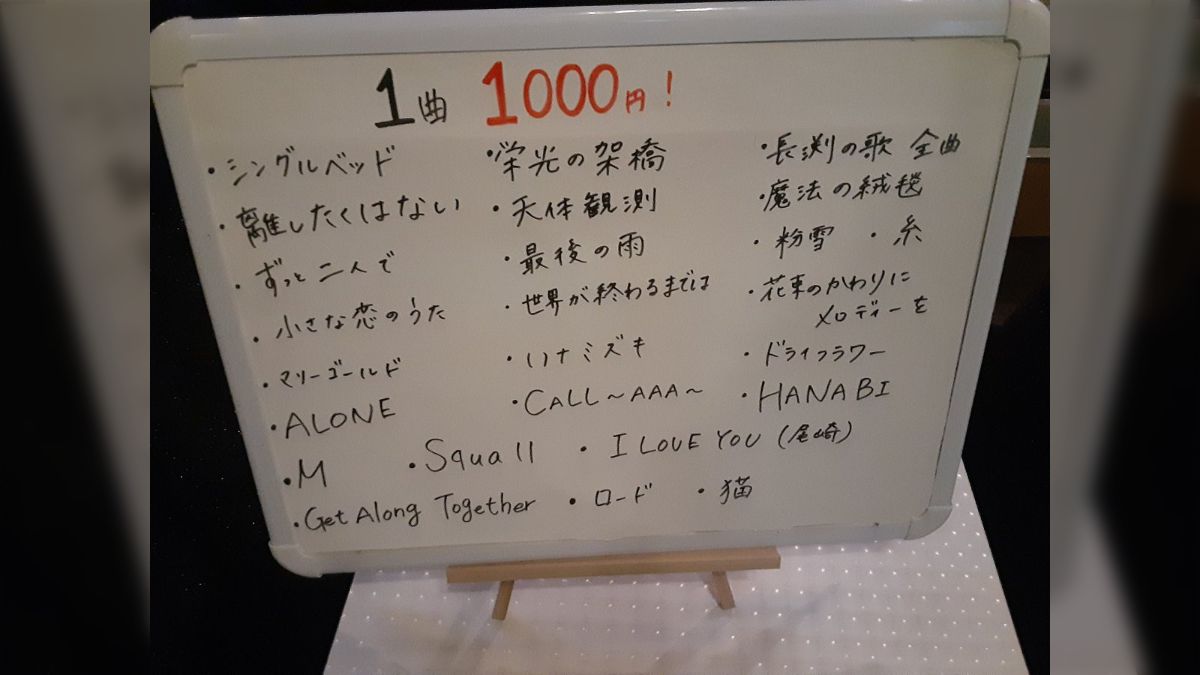 1曲 1000円!
・シングルベッド
・離したくはない
・ずっと二人で
・小さな恋のうた
・マリーゴールド
・ALONE
・M
・Squall
・I LOVE YOU (尾崎)
・Get Along Together
・ロード
・猫
・栄光の架橋
・天体観測
・最後の雨
・世界が終わるまでは
・ハナミズキ
・CALL～AAA～
・長渕の歌 全曲
・魔法の絨毯
・粉雪 ・糸
・花束のかわりに
メロディーを
・ドライフラワー
・HANABI